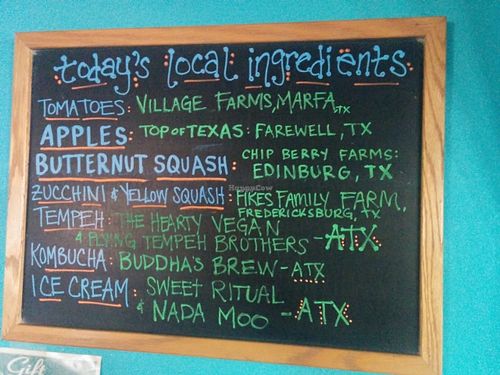 today's local ingredients
TOMATOES: VILLAGE FARMS, MARFA, TX
APPLES: TOP OF TEXAS: FAREWELL, TX
BUTTERNUT SQUASH: CHIP BERRY FARMS:
EDINBURG, TX
ZUCCHINI & YELLOW SQUASH: FIKES FAMILY FARM,
FREDERICKSBURG, TX
TEMPEH: THE HEARTY VEGAN
& FLYING TEMPEH BROTHERS - ATX
KOMBUCHA: BUDDHA'S BREW - ATX
ICE CREAM: SWEET RITUAL
& NADA MOO - ATX
Gift
HappyCow